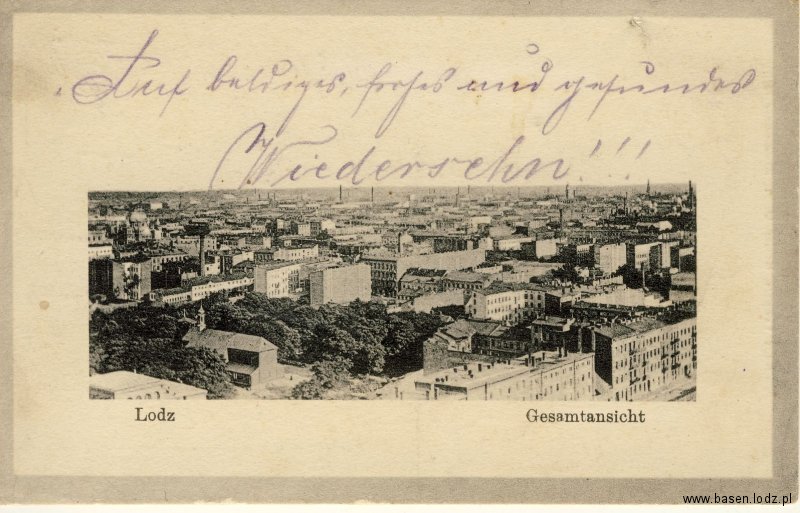 Auf baldiges, frohes und gesundes
Wiedersehn!!!
Lodz
Gesamtansicht
www.basen.lodz.pl